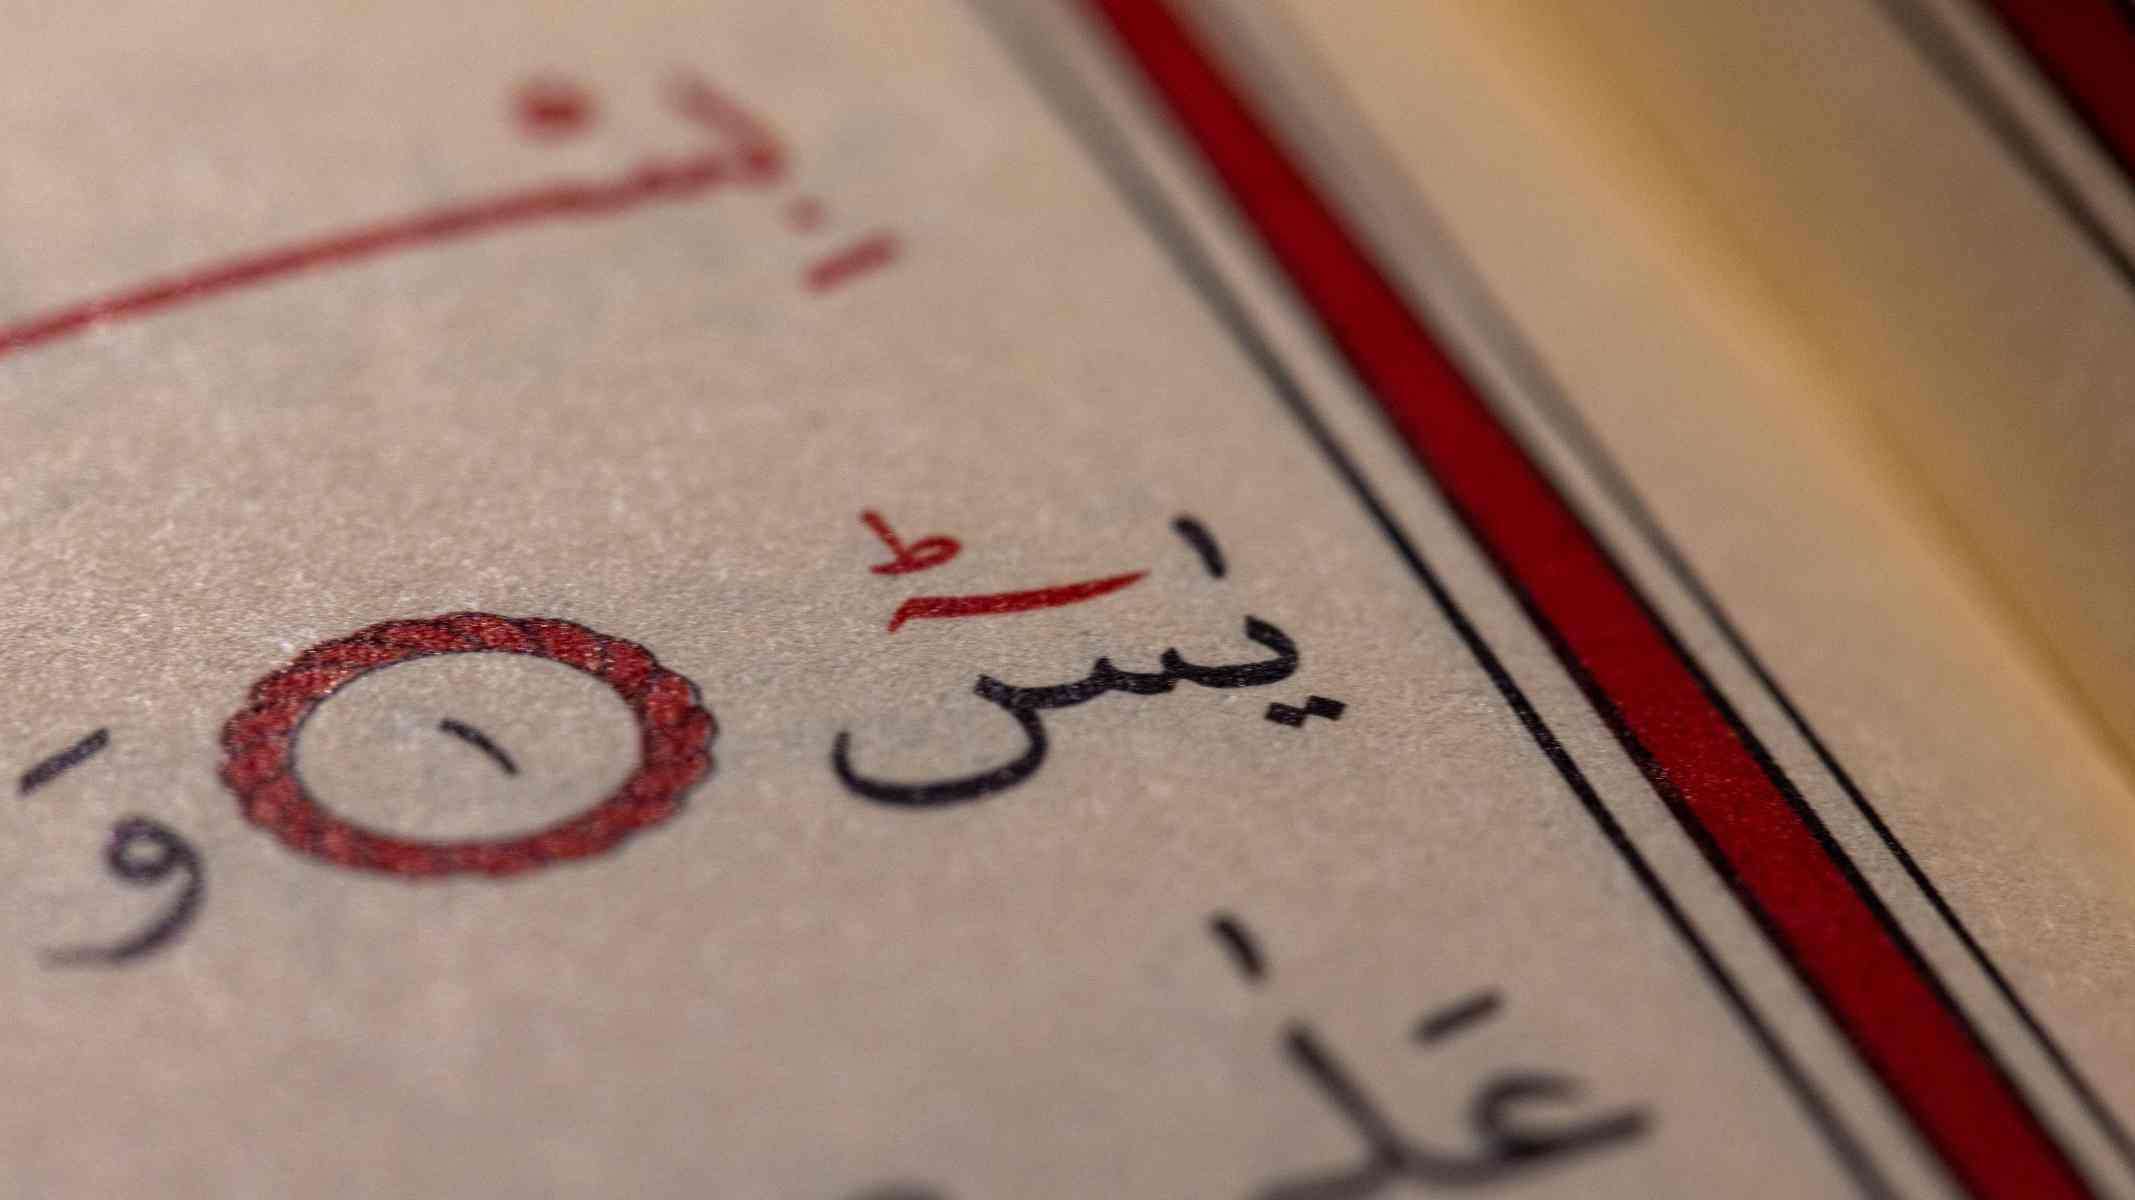 يٰسٓ ط ١ وَ
عَلٰى